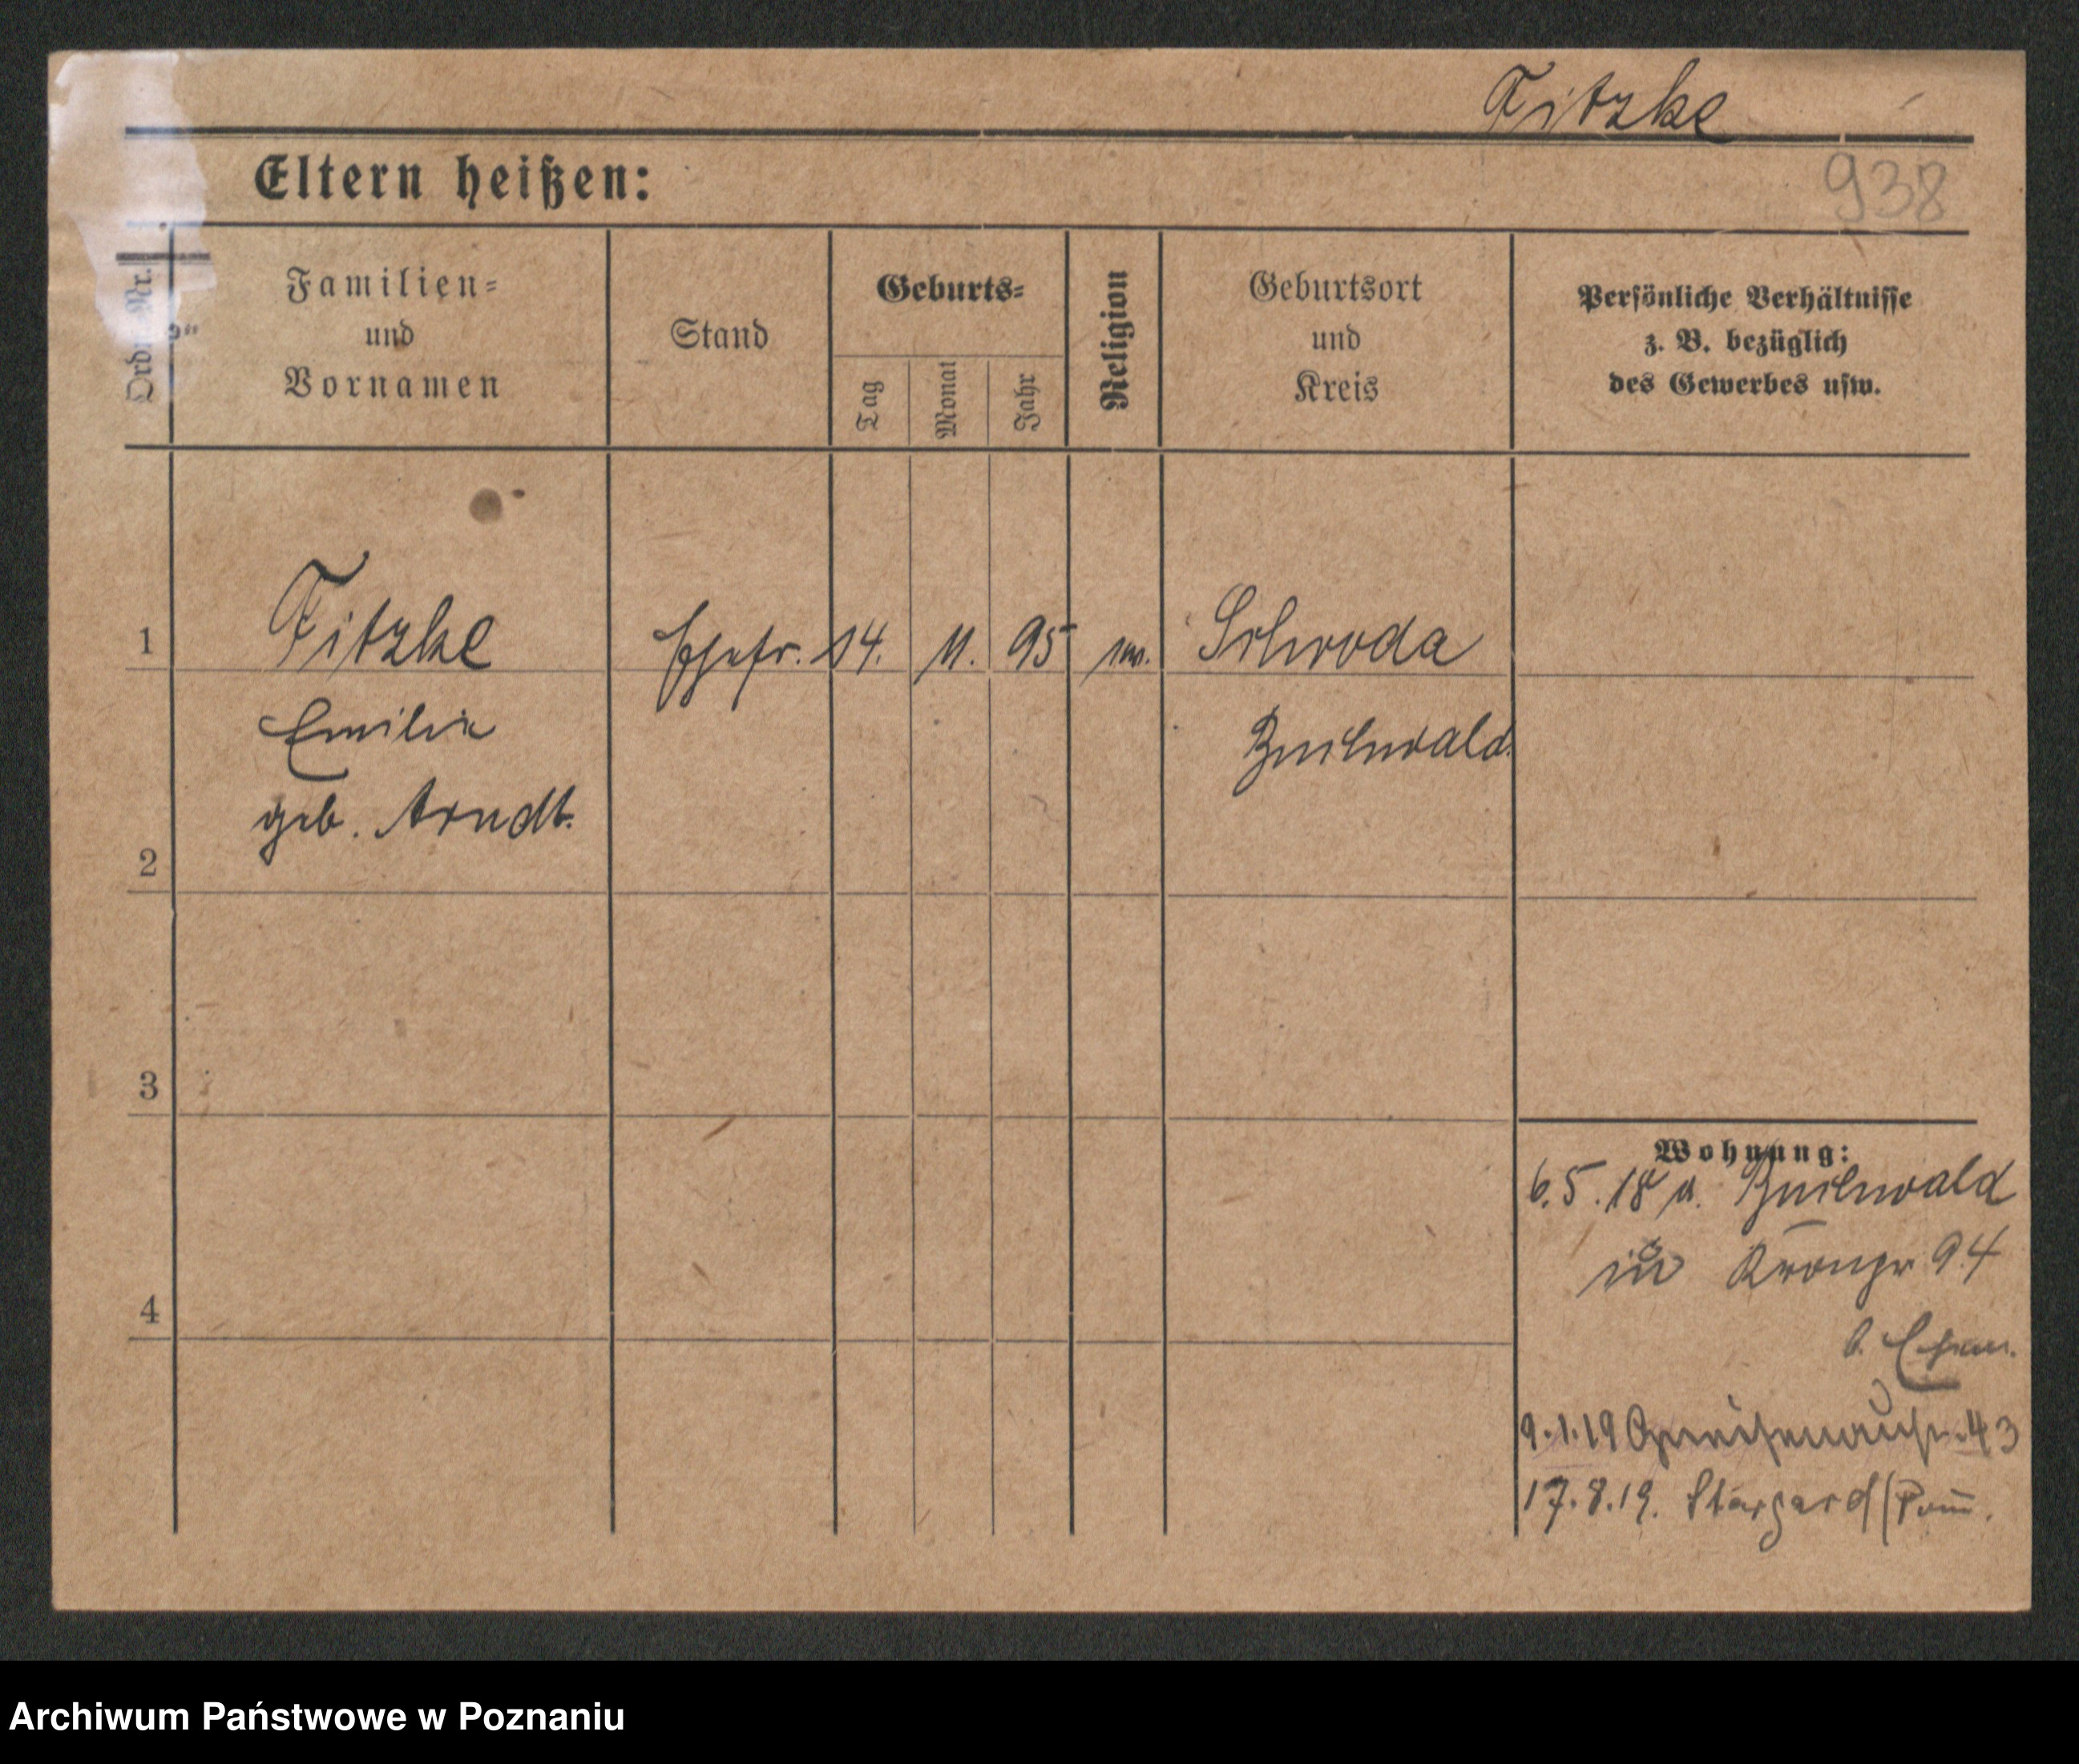 Fitzke
Eltern heißen:
938
Ordn. Nr.
Familien=
und
Vornamen
Stand
Geburts=
Tag
Monat
Jahr
Religion
Geburtsort
und
Kreis
Persönliche Verhältnisse
z. B. bezüglich
des Gewerbes usw.
1
Fitzke Ehefr. 14. 11. 95 Schroda
Emilie
Buchwald.
geb. Arndt.
2
3
4
Wohnung:
6.5.18 a. Buchwald
in Kronpr 94
b. Ehem.
9.1.19 Gneisenaustr. 43
17.8.19. Stargard/Pom̄.
Archiwum Państwowe w Poznaniu